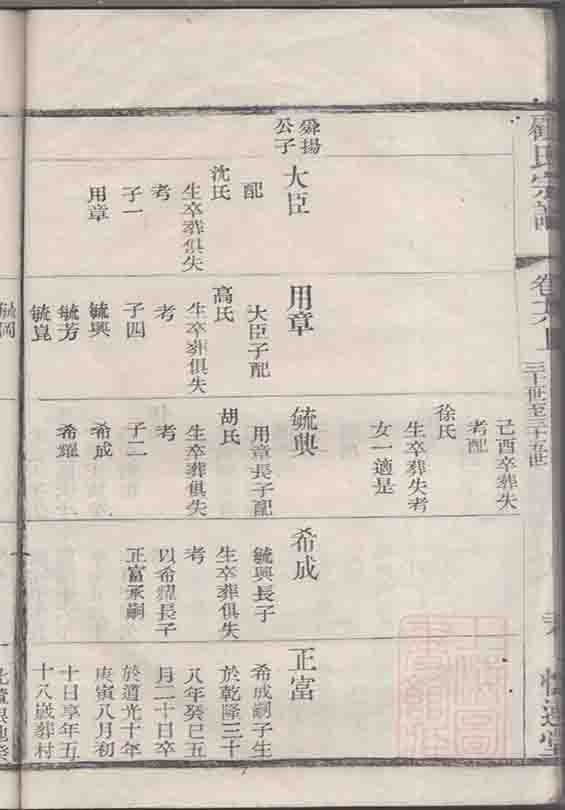 氏宗譜
三十一世至三十五世
己酉卒葬失
考配
徐氏
生卒葬失考
女一適是
舜揚
公子
大臣
配
沈氏
生卒葬俱失
考
子一
用章
用章
大臣子配
高氏
生卒葬俱失
考
子四
毓興
毓芳
毓崑
毓興
用章長子配
胡氏
生卒葬俱失
考
子二
希成
希耀
希成
毓興長子
生卒葬俱失
考
以希耀長子
正富承嗣
正富
希成嗣子生
於乾隆三十
八年癸巳五
月二十日卒
於道光十年
庚寅八月初
十日享年五
十八歲葬村
毓岡